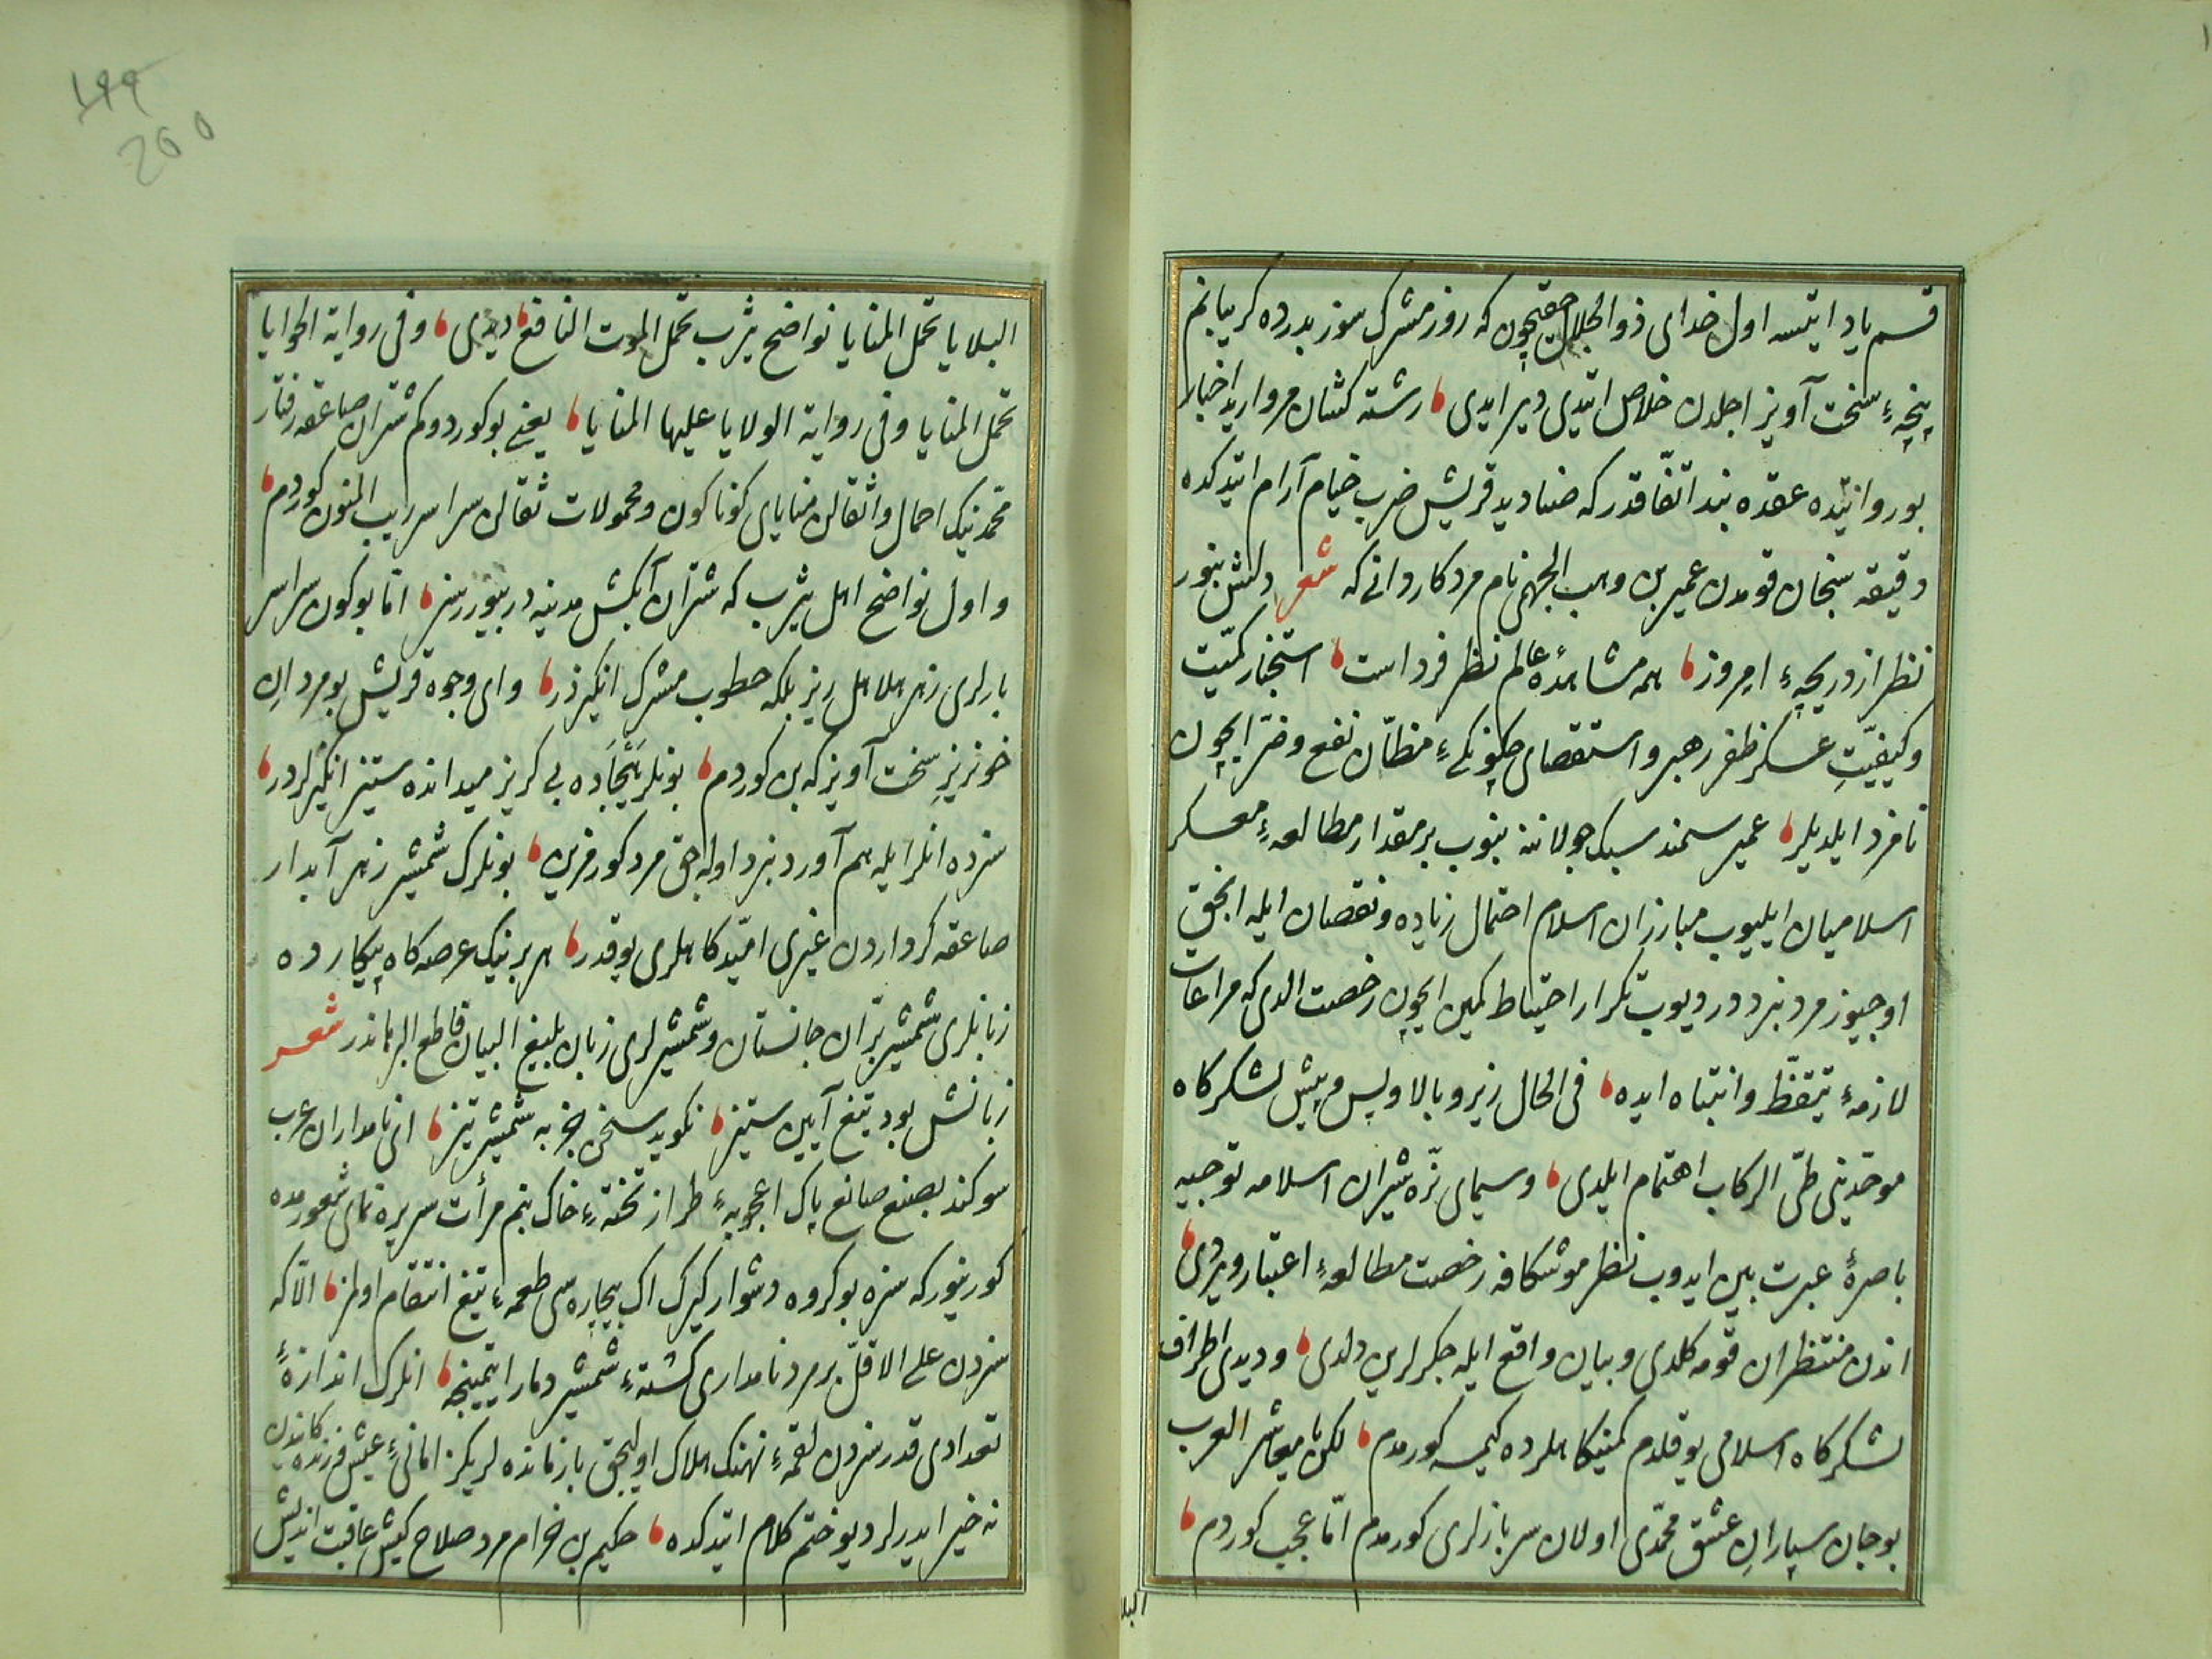 قسم یاد ایتسه اول خدای ذوالجلال حقیچون که روز مشرک سوز بدرده کریبانم
پنچهٔ سخت آویز اجلدن خلاص ایتدی دیر ایدی رشته کشان مروارید اخبار
بو روایتده عقده بند اتفّاقدر که صنادید قریش ضرب خیام آرام ایتدکده
دقیقه سنجان قومدن عمیر بن وهب الجهمی نام مرد کاردانی که شعر دلش بنور
نظر از دریچهٔ امروز همه مشاهدهٔ عالم نظر فرداست استخبار کمّیت
وکیفیّتِ عسکر ظفر رهبر واستقصای چکونکیٔ مظانّ نفع وضرّ ایچون
نامزد ایلدیلر عمیر سمند سبک جولاننه بنوب بر مقدار مطالعهٔ معسکر
اسلامیان ایلیوب مبارزان اسلام احتمال زیاده ونقصان ایله انجق
اوچیوز مرد نبرددر دیوب تکرار احتیاط کمین ایچون رخصت الدی که مراعات
لازمهٔ تیقّظ وانتباه ایده فی الحال زیر وبالا وپس وپیش لشکرکاه
موحّدینی طیّ الرکاب اهتمام ایلدی وسیمای نرّه شیران اسلامه توجیه
باصرهٔ عبرت بین ایدوب نظر موشکافه رخصت مطالعهٔ اعتبار ویردی
اندن منتظران قومه کلدی وبیان واقع ایله جکرلرین دلدی ودیدی اطراف
لشکرکاه اسلامی یوقلدم کمینکاهلرده کیمسه کورمدم لکن یا معاشر العرب
بو جان سپاران عشق محمّدی اولان سربازلری کوردم امّا عجب کوردم
البلا
البلایا تحمل المنایا نواضح یثرب تحمل الموت الناقع دیدی وفی روایة الحوایا
تحمل المنایا وفی روایة الولایا علیها المنایا یعنی بو کوردوکم شتران صاعقه رفتار
محمّدینک احمال واثقالن منایای کوناکون ومحمولات ثقالن سراسر ریب المنون کوردم
واول نواضح اهل یثرب که شتران آبکش مدینه در بیورسز امّا بوکون سراسر
بارلری زهر هلاهل ریز بلکه حطوب مشرک انکیزدر وای وجوه قریش بو مردانِ
خونریزِ سخت آویز که بن کوردم بونلر هَیْجَاده بی کریز میدانده ستیز انکیزلردر
سزده انلر ایله هم آورد نبرد اوله جق مرد کورمزین بونلرک شمشیر زهر آبدار
صاعقه کرداردن غیری امّیدکاهلری یوقدر هر برینک عرصه کاه پیکارده
زبانلری شمشیر برّان جانستان وشمشیرلری زبان بلیغ البیان قاطع البرهاندر شعر
زبانش بود تیغ آیین ستیز نکوید سخن جز به شمشیر تیز ای نامداران عرب
سوکند بصنع صانع پاک اعجوبهٔ طراز تختهٔ خاک بنم مرأت سریره نمای شعورمده
کورینور که سزه بو کروه دشوار کیرک اک بیچاره سی طعمهٔ تیغ انتقام اولمز الّا که
سزدن علی الاقلّ بر مرد نامداری کشتهٔ شمشیر دمار ایتمینجه انلرک اندازهٔ
تعدادی قدر سزدن لقمهٔ نهنک هلاک اولیجق بازمانده لریکز امانیٔ عیش فرزندکاندن
نه خیر ایدرلر دیو ختم کلام ایتدکده حکیم بن حزام مرد صلاح کیش عاقبت اندیش
199
200